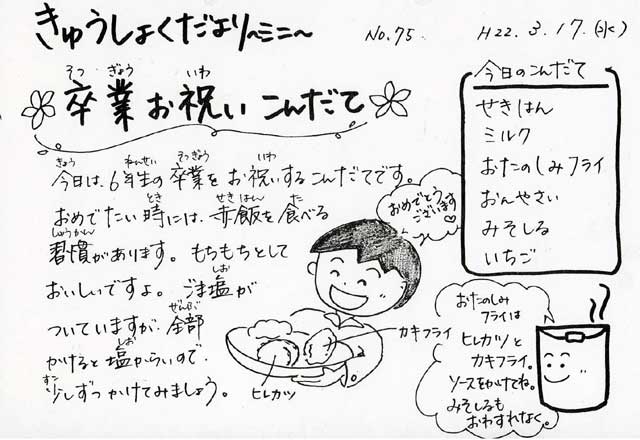 きゅうしょくだより～ミニ～
No.75.
H22.3.17.(水)
卒業お祝いこんだて
そつ ぎょう いわ
今日は、6年生の卒業をお祝いするこんだてです。
きょう ねんせい そつぎょう いわ
おめでたい時には、赤飯を食べる
とき せきはん た
習慣があります。もちもちとして
しゅうかん
おいしいですよ。ごま塩が
しお
ついていますが、全部
ぜんぶ
かけると塩からいので、
しお
少しずつかけてみましょう。
すこ
おめでとう
ございます
カキフライ
ヒレカツ
今日のこんだて
せきはん
ミルク
おたのしみフライ
おんやさい
みそしる
いちご
おたのしみ
フライは
ヒレカツと
カキフライ。
ソースをかけてね。
みそしるも
おわすれなく。